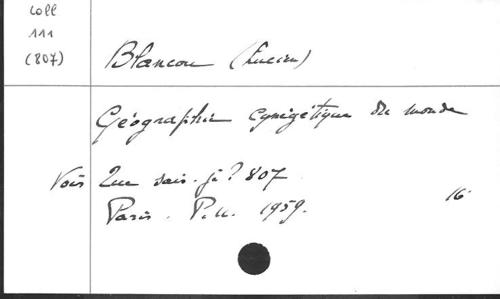 Coll
111
(807)
Blancou (Lucien)
Géographie cynégétique du monde
Voir Que sais-je? 807
Paris. P.U. 1959. 16